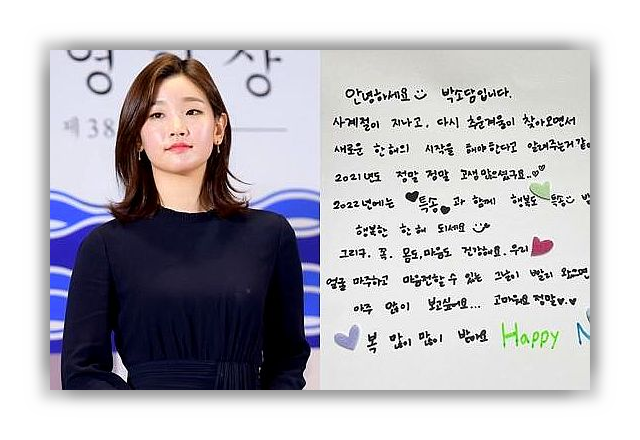 영 화 상
제38
안녕하세요 박소담입니다.
사계절이 지나고, 다시 추운겨울이 찾아오면서
새로운 한해의 시작을 해야한다고 알려주는거같아
2021년도 정말 정말 고생 많으셨구요..
2022년에는 특송 과 함께 행복도 특송
행복한 한 해 되세요
그리구. 꼭. 몸도,마음도 건강해요. 우리
얼굴 마주하고 마음전할 수 있는 그날이 빨리 왔으면
아주 많이 보고싶어요... 고마워요 정말
복 많이 많이 받아요 Happy N